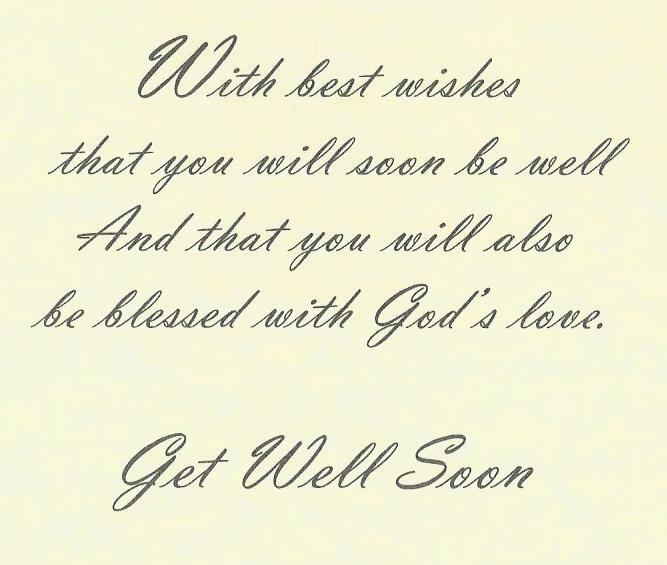 With best wishes
that you will soon be well
And that you will also
be blessed with God's love.
Get Well Soon